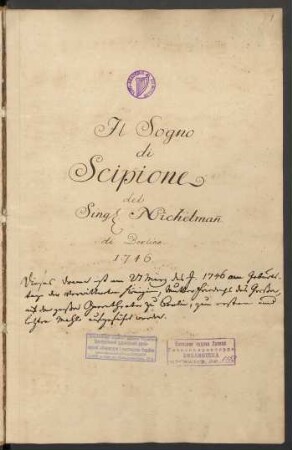 Il Sogno
di
Scipione
del
Sing. Nichelmañ
de Berlino.
1746
Dieses Drama ist am 27 März des J. 1746 am Geburts-
tage der verwittweten Königin, Mutter Friedrichs des Großen,
auf der großen Operntheater zu Berlin, zum ersten und
letzten Mahle aufgeführt worden.